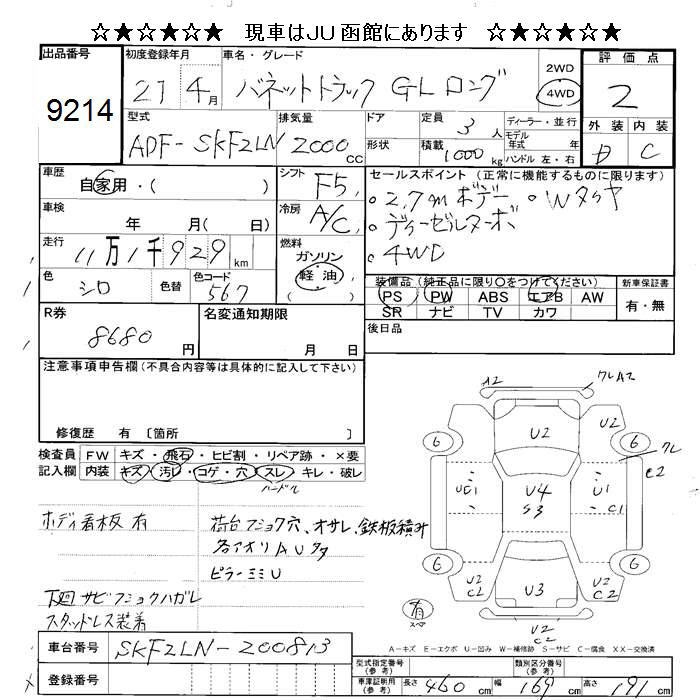 ☆★☆★☆★ 現車はJU函館にあります ☆★☆★☆★
出品番号 初度登録年月 車名・グレード 評価点
9214 21 4月 バネットトラック GLロング 2WD 4WD 2
型式 排気量 ドア 定員 ディーラー・並行 外装 内装
ADF-SKF2LN 2000cc 形状 3人 モデル年式 年 D C
積載 1000kg ハンドル 左・右
車歴 シフト セールスポイント (正常に機能するものに限ります)
自家用・( ) F5 。2.7mボデー 。Wタイヤ
車検 冷房 。ディーゼルターボ
年 月( 日) A/C 。4WD
走行 燃料
11万1千929km ガソリン
色 色替 色コード 軽・油 装備品 (純正品に限り○をつけてください) 新車保証書
シロ 567 ( ) PS PW ABS エアB AW 有・無
R券 名変通知期限 SR ナビ TV カワ
8680円 月 日 後日品
注意事項申告欄 (不具合内容等は具体的に記入して下さい)
修復歴 有 〔箇所 〕
検査員 FW キズ・飛石・ヒビ割・リペア跡・×要
記入欄 内装 キズ・汚レ・コゲ・穴・スレ・キレ・破レ
ハンドル
ボディ看板有 荷台フショク穴、オサレ、鉄板積み
各アオリAUタタ
ピラーミミU
下廻サビフショクハガレ
スタッドレス装着
A2 クレA2
U2 U2
6 6 クレ
C2
UE1 U4 U1
S3 C1
6 6
U2 U3 U2
C2 C2
有 スペア U2
C2
A-キズ E-エクボ U-凹み W-補修跡 S-サビ C-腐食 XX-交換済
車台番号 SKF2LN-200813
登録番号
型式指定番号 (参考) 類別区分番号 (参考)
車庫証明用 (参考) 長さ 460cm 幅 169cm 高さ 191cm